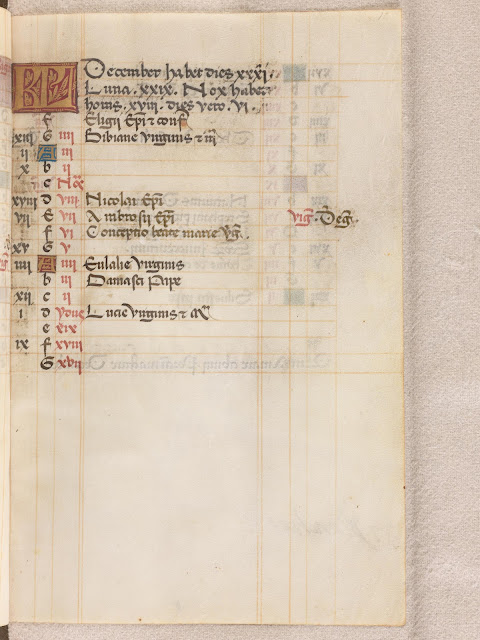 KL December habet dies xxxi.
Luna. xxix. Nox habet
horas. xviii. dies vero. vi.
f Eligii Epi et conf
xiii G iiii Bibiane virginis et m
ii A iii
x b ii
c Nos
xviii d viii Nicolai Epi
vii e vii Ambrosii Epi vig. Deg.
f vi Conceptio beate marie vg.
xv G v
iiii A iiii Eulalie virginis
b iii Damasci Pape
xii c ii
i d ydus Lucie virginis et m
e xix
ix f xviii
G xvii